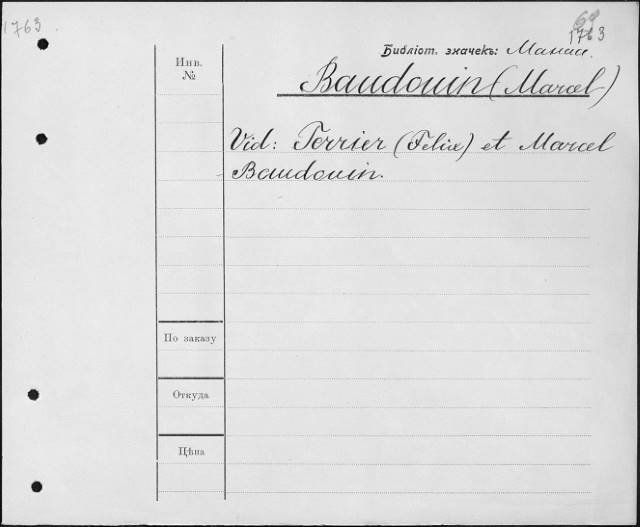 1763
69
1763
Библіот. значекъ:
Инв.
№
Baudouin (Marcel)
Vid: Terrier (Felix) et Marcel
Baudouin.
По заказу
Откуда
Цѣна